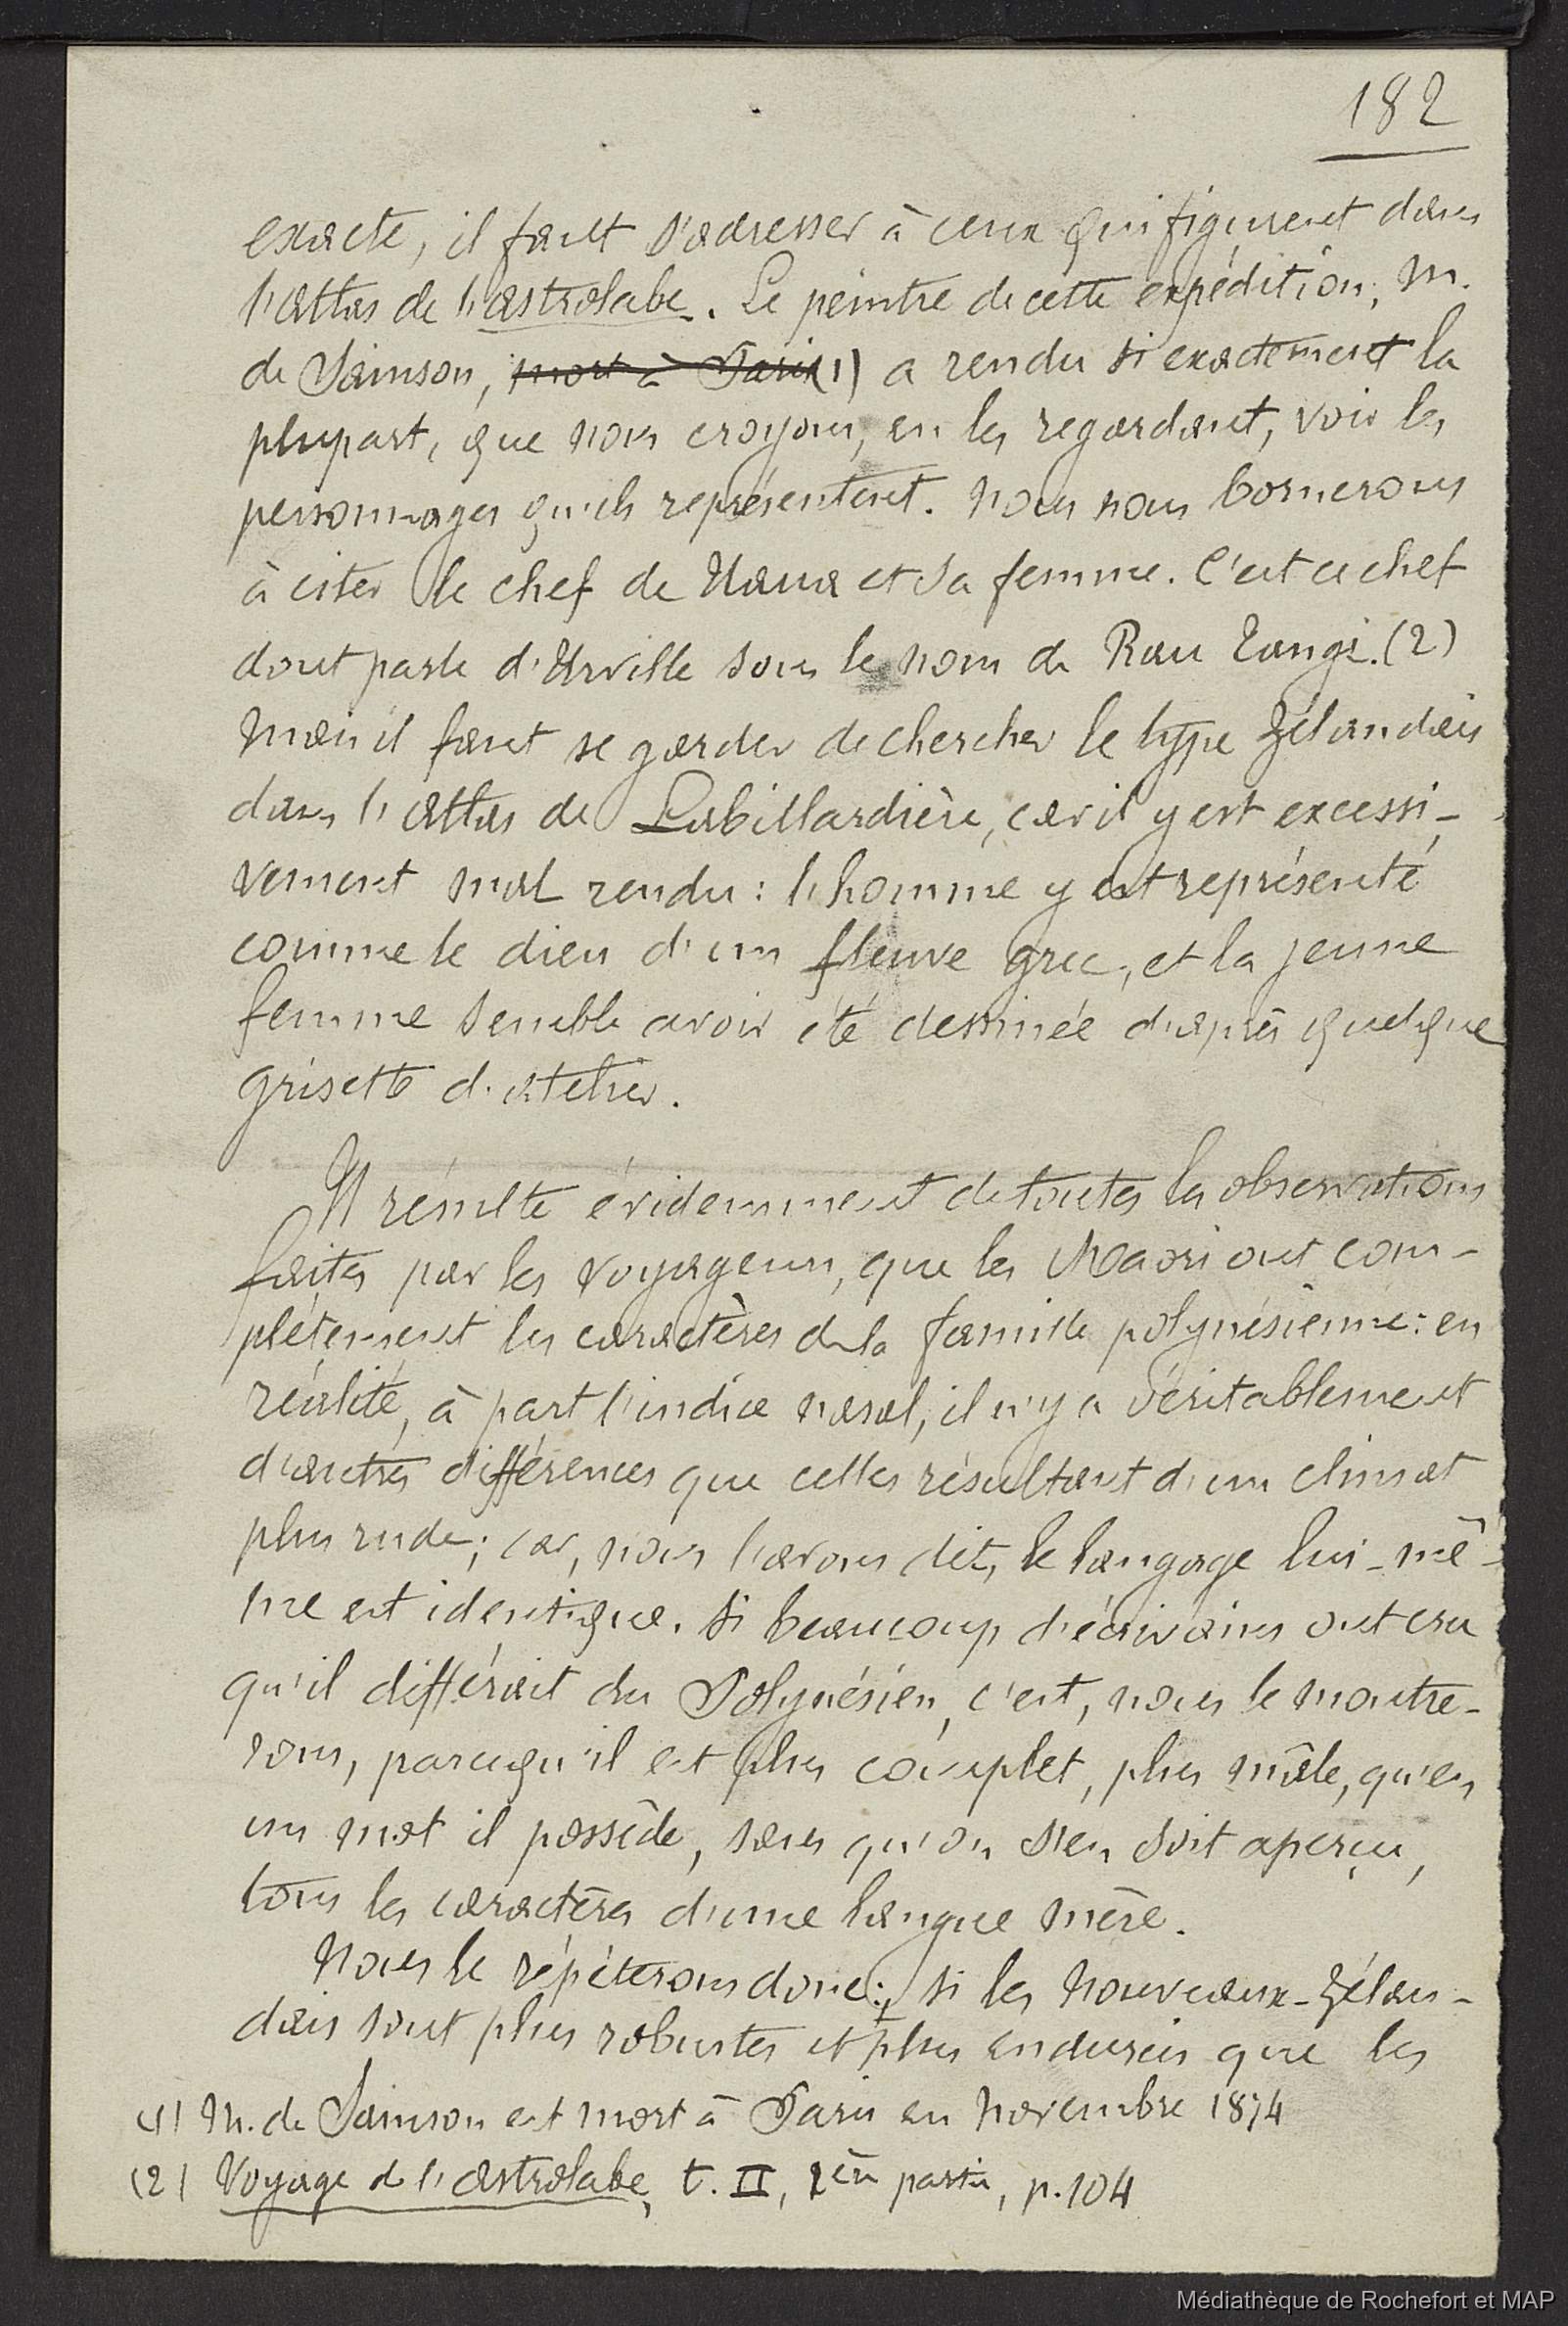 182
exacte, il faut s'adresser à ceux qui figurent dans
l'atlas de l'astrolabe. Le peintre de cette expédition, M.
de Sainson, mort à Paris (1) a rendu si exactement la
plupart, que nous croyons, en les regardant, voir les
personnages qu'ils représentent. Nous nous bornerons
à citer le chef de Uaua et sa femme. C'est ce chef
dont parle d'Urville sous le nom de Rau Tangi. (2)
Mais il faut se garder de chercher le type zélandais
dans l'atlas de Labillardière, car il y est excessi-
vement mal rendu : l'homme y est représenté
comme le dieu d'un fleuve grec, et la jeune
femme semble avoir été dessinée d'après quelque
grisette d'atelier.
Il résulte évidemment de toutes les observations
faites par les voyageurs, que les Maori ont com-
plétement les caractères de la famille polynésienne : en
réalité, à part l'indice nasal, il n'y a véritablement
d'autres différences que celles résultant d'un climat
plus rude ; car, nous l'avons dit, le langage lui-mê-
me est identique. Si beaucoup d'écrivains ont cru
qu'il différait du Polynésien, c'est, nous le montre-
rons, parcequ'il est plus complet, plus mâle, qu'en
un mot il possède, sans qu'on s'en soit aperçu,
tous les caractères d'une langue mère.
Nous le répéterons donc : si les Nouveaux-Zélan-
dais sont plus robustes et plus endurcis que les
(1) M. de Sainson est mort à Paris en Novembre 1874
(2) Voyage de l'astrolabe, t. II, 1ère partie, p. 104
Médiathèque de Rochefort et MAP